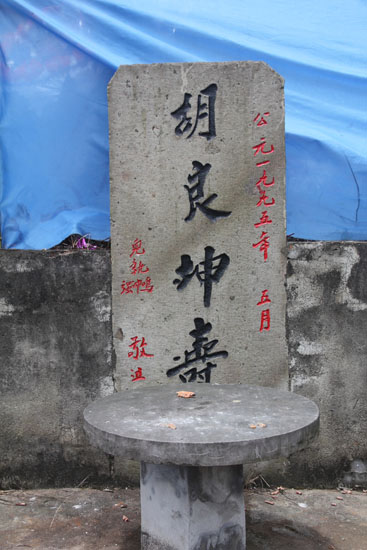 公元一九九五年 五月
胡良坤壽
兒
敬立